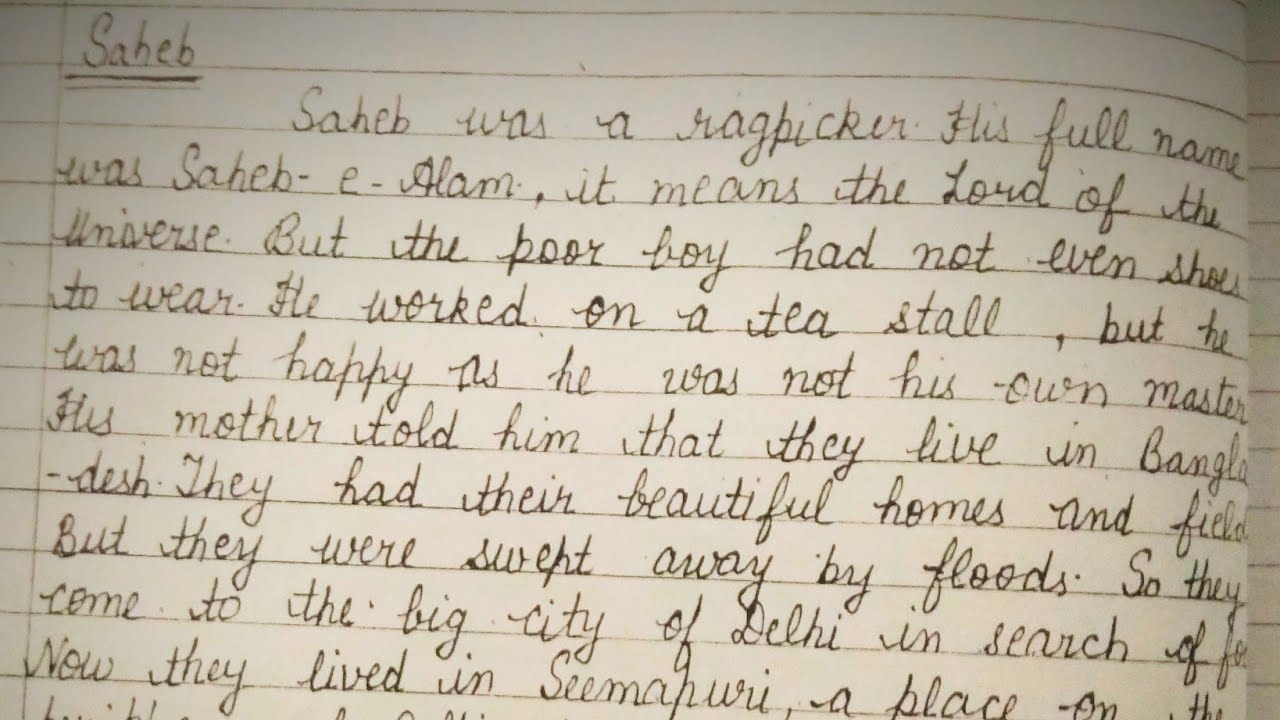 Saheb
Saheb was a ragpicker. His full name
was Saheb-e-Alam, it means the Lord of the
Universe. But the poor boy had not even shoes
to wear. He worked on a tea stall, but he
was not happy as he was not his own master
His mother told him that they live in Bangla
-desh. They had their beautiful homes and field
But they were swept away by floods. So they
come to the big city of Delhi in search of
Now they lived in Seemapuri, a place on the